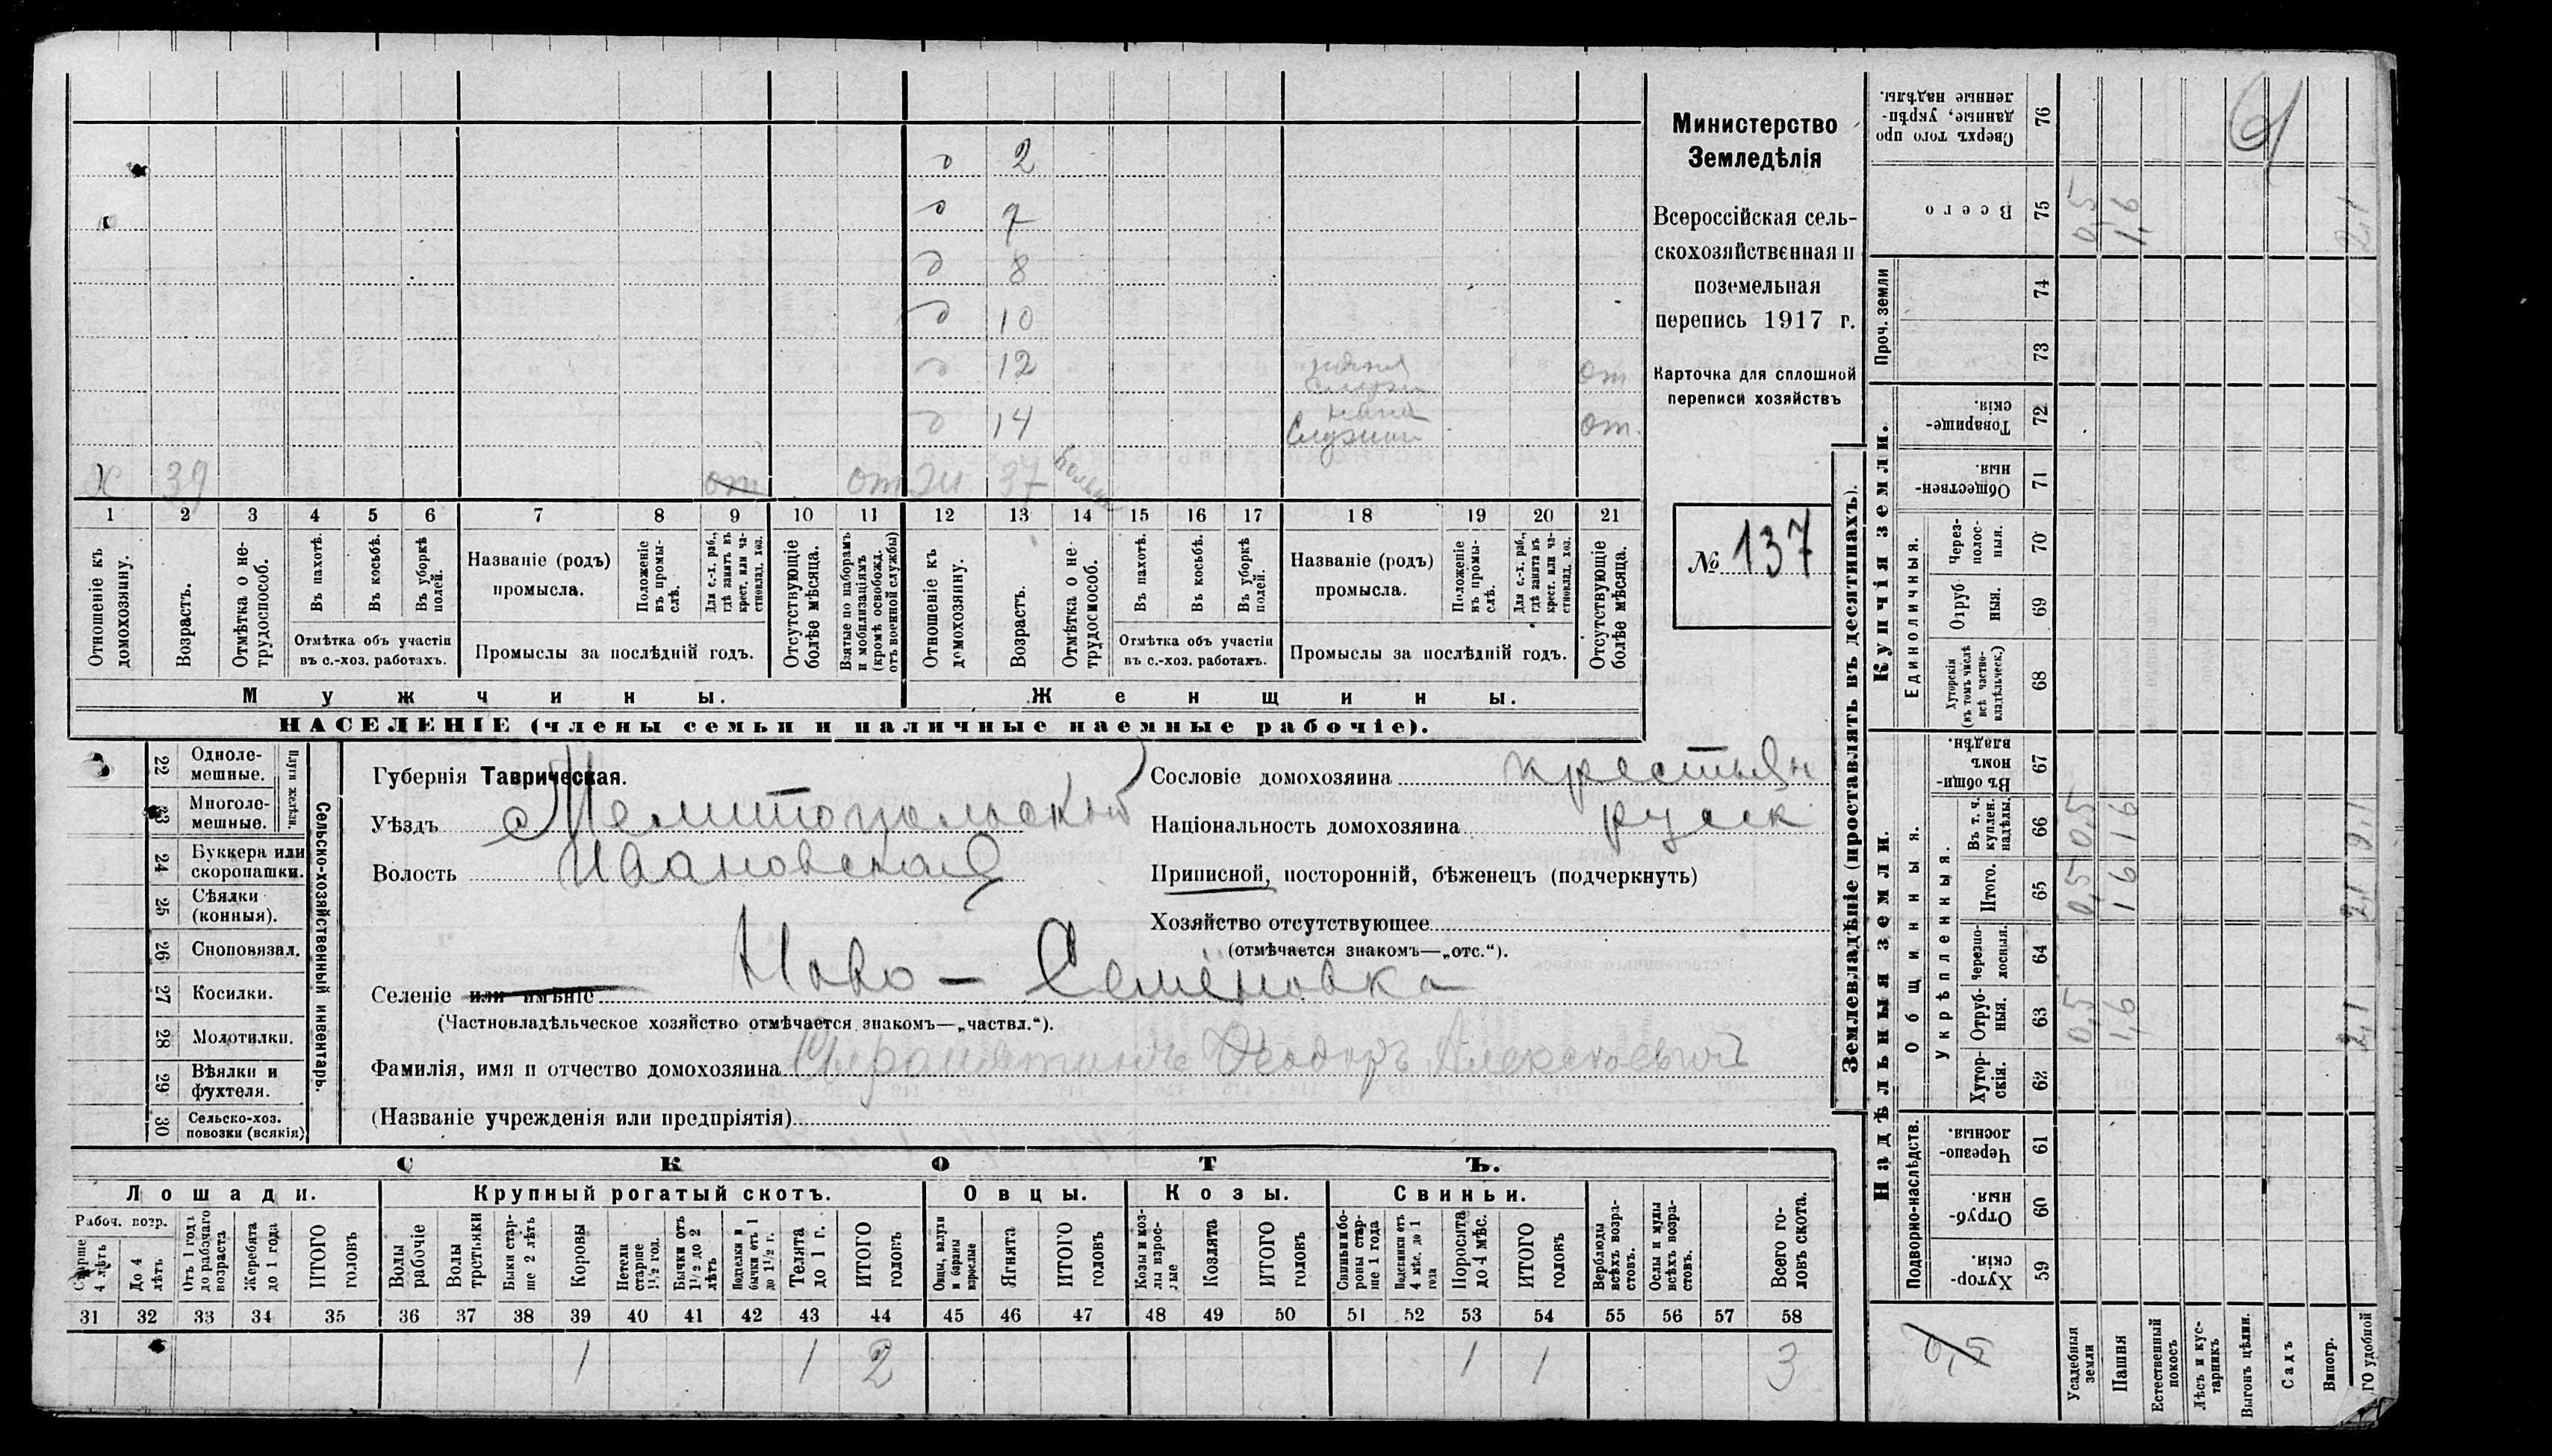 2
7
8
10
12 няня от
14 няня от
Х 39 от от Ж 37 больн
1 2 3 4 5 6 7 8 9 10 11 12 13 14 15 16 17 18 19 20 21
Отношеніе къ домохозяину.
Возрастъ.
Отмѣтка о не-трудоспособ.
Въ пахотѣ.
Въ косьбѣ.
Въ уборкѣ полей.
Отмѣтка объ участіи
въ с.-хоз. работахъ.
Названіе (родъ)
промысла.
Положеніе въ промы-слѣ.
Для с.-х. раб., гдѣ занятъ въ крест. или ча-стновлад. хоз.
Промыслы за послѣдній годъ.
Отсутствующіе болѣе мѣсяца.
Взятые по наборамъ и мобилизаціямъ (кромѣ освобожд. отъ военной службы)
Отношеніе къ домохозяину.
Возрастъ.
Отмѣтка о не-трудоспособ.
Въ пахотѣ.
Въ косьбѣ.
Въ уборкѣ полей.
Отмѣтка объ участіи
въ с.-хоз. работахъ.
Названіе (родъ)
промысла.
Положеніе въ промы-слѣ.
Для с.-х. раб., гдѣ занята въ крест. или ча-стновлад. хоз.
Промыслы за послѣдній годъ.
Отсутствующіе болѣе мѣсяца.
Мужчины.
Женщины.
НАСЕЛЕНІЕ (члены семьи и наличные наемные рабочіе).
Министерство
Земледѣлія
Всероссійская сель-
скохозяйственная и
поземельная
перепись 1917 г.
Карточка для сплошной
переписи хозяйствъ
№ 137
22 Одноле-мешные.
23 Многоле-мешные.
Плуги желѣзн.
24 Буккера или скоропашки.
25 Сѣялки (конныя).
26 Сноповязал.
27 Косилки.
28 Молотилки.
29 Вѣялки и фухтеля.
30 Сельско-хоз. повозки (всякія)
Сельско-хозяйственный инвентарь.
Губернія Таврическая.
Уѣздъ Мелитопольскій
Волость Ивановская
Сословіе домохозяина крестьян
Національность домохозяина русск
Приписной, посторонній, бѣженецъ (подчеркнуть)
Хозяйство отсутствующее
(отмѣчается знакомъ—„отс.“).
Селеніе или имѣніе Ново - Семёновка
(Частновладѣльческое хозяйство отмѣчается знакомъ—„частвл.“).
Фамилія, имя и отчество домохозяина Сыромятинъ Ѳеодоръ Алексѣевичъ
(Названіе учрежденія или предпріятія)
СКОТЪ.
Лошади.
Рабоч. возр.
Старше 4 лѣтъ
До 4 лѣтъ
Отъ 1 годъ до рабочаго возраста
Жеребята до 1 года
ИТОГО головъ
Крупный рогатый скотъ.
Волы рабочіе
Волы третьяки
Быки стар-ше 2 лѣтъ
Коровы
Нетели старше 1½ год.
Бычки отъ 1½ до 2 лѣтъ
Подтелки и бычки отъ 1 до 1½ г.
Телята до 1 г.
ИТОГО головъ
Овцы.
Овцы, валухи и бараны взрослые
Ягнята
ИТОГО головъ
Козы.
Козы и коз-лы взрос-лые
Козлята
ИТОГО головъ
Свиньи.
Свиньи и бо-ровы стар-ше 1 года
Подсвинки отъ 4 мѣс. до 1 года
Поросята до 4 мѣс.
ИТОГО головъ
Верблюды всѣхъ возра-стовъ.
Ослы и мулы всѣхъ возра-стовъ.
Всего го-ловъ скота.
31 32 33 34 35 36 37 38 39 40 41 42 43 44 45 46 47 48 49 50 51 52 53 54 55 56 57 58
1 1 2 1 1 3
Землевладѣніе (проставлять въ десятинахъ).
Купчія земли.
Надѣльныя земли.
Сверхъ того про данные, укрѣп-ленные надѣлы. 76
Всего 75 0,5 1,6 2,1
Проч. земли 74 73
Товарище-скія. 72
Обществен-ныя. 71
Единоличныя.
Через-полос-ныя. 70
Отруб ныя. 69
Хуторскія (въ томъ числѣ всѣ частно-владѣльческ.) 68
Общинныя.
Въ общи-номъ владѣн. 67
Укрѣпленныя.
Въ т. ч. куплен. надѣлы. 66 0,5 1,6 2,1
Итого. 65 0,5 1,6 2,1
Черезпо-лосныя. 64
Отруб-ныя. 63 0,5 1,6 2,1
Хутор-скія. 62
Подворно-наслѣдств.
Черезпо-лосныя. 61
Отруб-ныя. 60
Хутор-скія. 59
0,5
Усадебныя земли
Пашня
Естественный покосъ
Лѣсъ и кус-тарникъ
Выгонъ цѣлин.
Садъ
Виногр.
ГО удобной